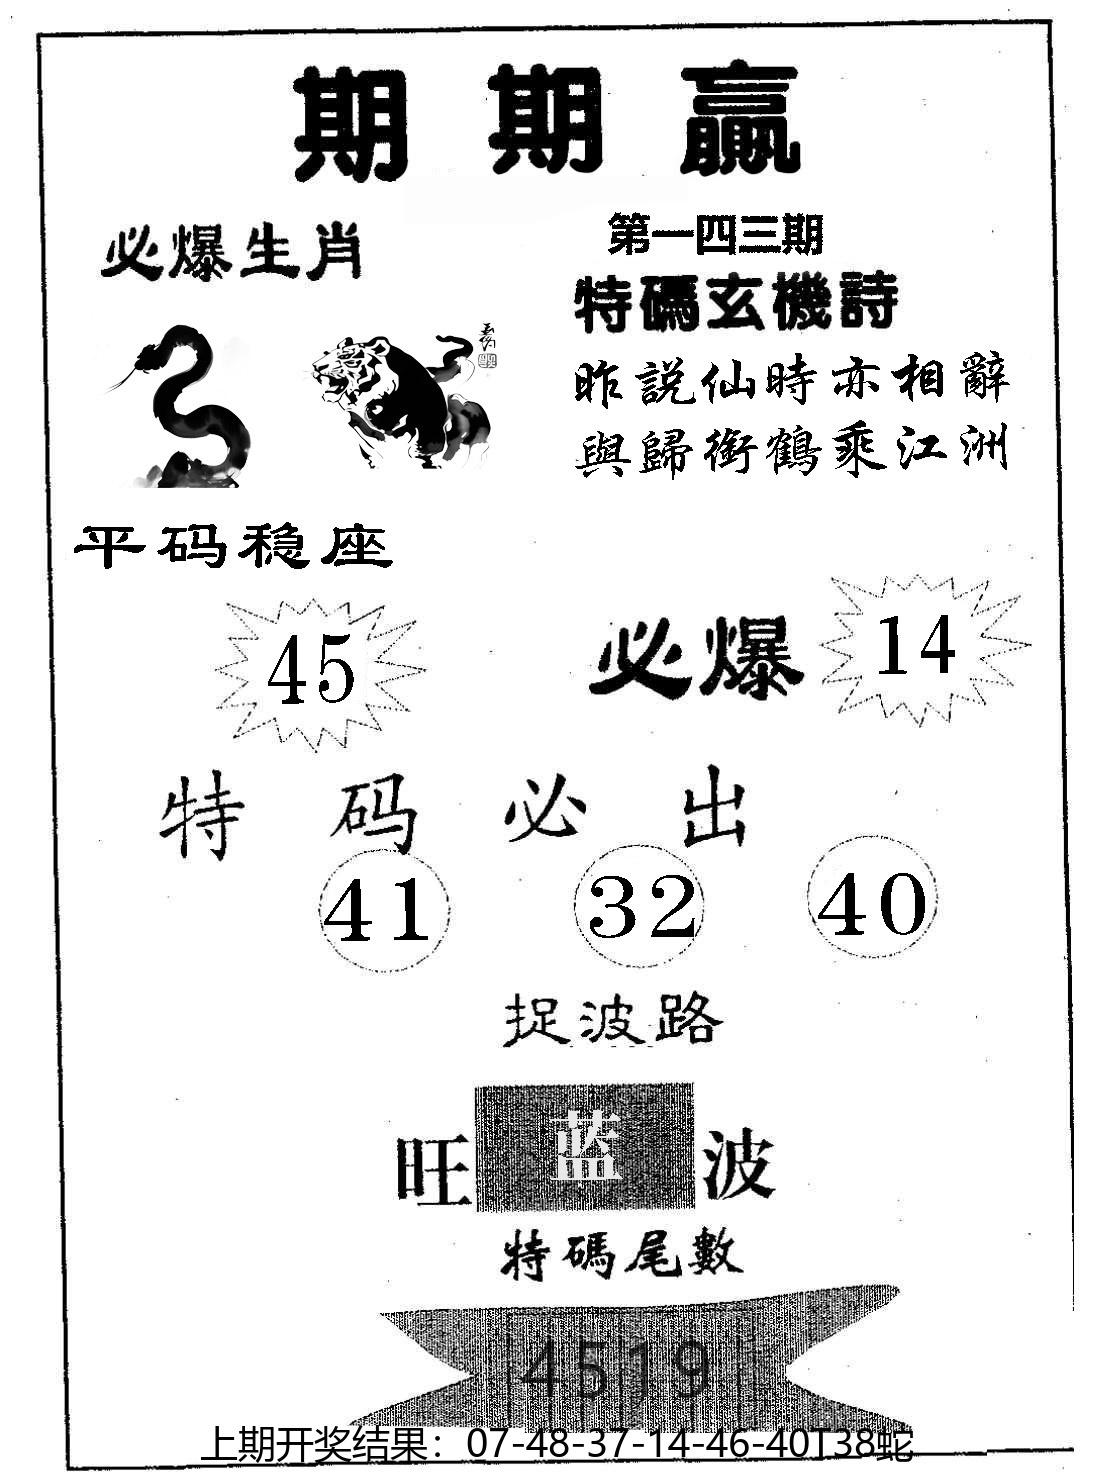 期期贏
第一四三期
必爆生肖
特碼玄機詩
昨説仙時亦相辭
與歸銜鶴乘江洲
平码稳座
45
必爆 14
特码必出
41 32 40
捉波路
旺蓝波
特碼尾數
4519
上期开奖结果：07-48-37-14-46-40T38蛇